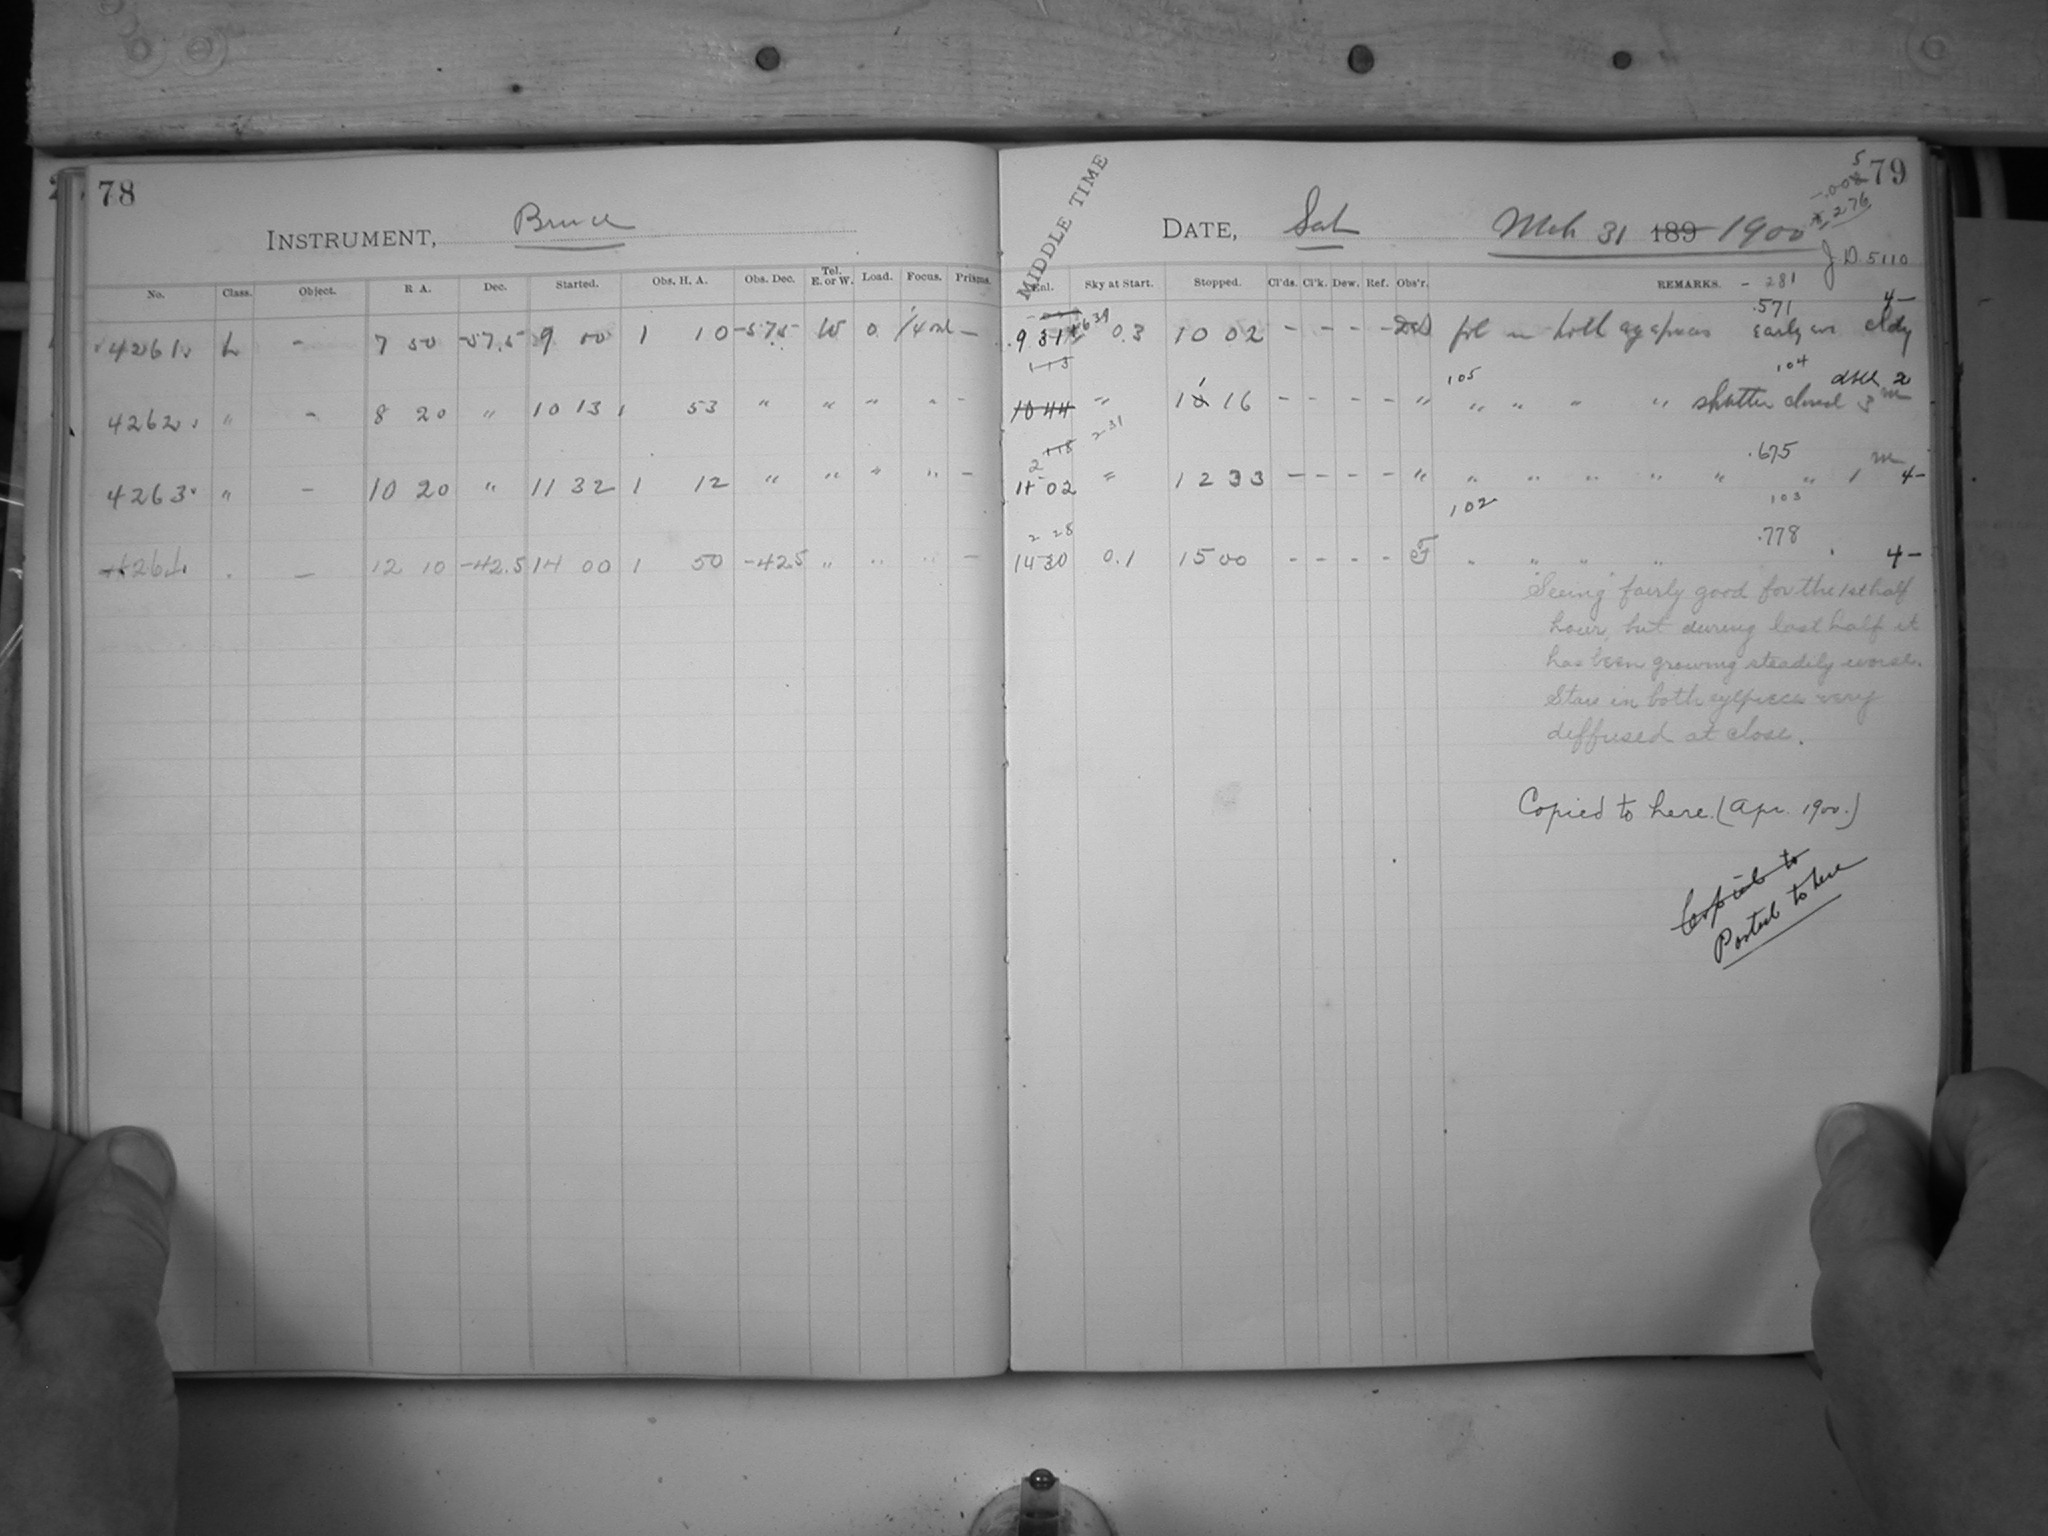 78
INSTRUMENT, Bruce
No. Class. Object. R A. Dec. Started. Obs. H. A. Obs. Dec. Tel. E. or W. Load. Focus. Prisms.
4261 L - 7 50 -57.5 9 00 1 10 -57.5 W 0 14 -
4262 " - 8 20 " 10 13 1 53 " " " " -
4263 " - 10 20 " 11 32 1 12 " " " " -
4264 " - 12 10 -42.5 14 00 1 50 -42.5 " " " -
79
5
-.008
.276
MIDDLE TIME
DATE, Sat Mch 31 189 1900
J.D. 5110
Enl. Sky at Start. Stopped. Cl'ds. Cl'k. Dew. Ref. Obs'r. REMARKS. - 281
.571 4-
9 31 0.3 10 02 - - - - fol in both eyepieces early cldy
113
105 104
10 44 " 10 16 - - - - " " " " " shutter closed 3 m
118 2 31
2 .675 m
11 02 " 12 33 - - - - " " " " " " " 1 4-
102 103
2 28 .778
14 30 0.1 15 00 - - - - " " " " 4-
"Seeing" fairly good for the 1st half
hour, but during last half it
has been growing steadily worse.
Stars in both eyepieces very
diffused at close.
Copied to here. (Apr. 1900.)
Copied to
Posted to here